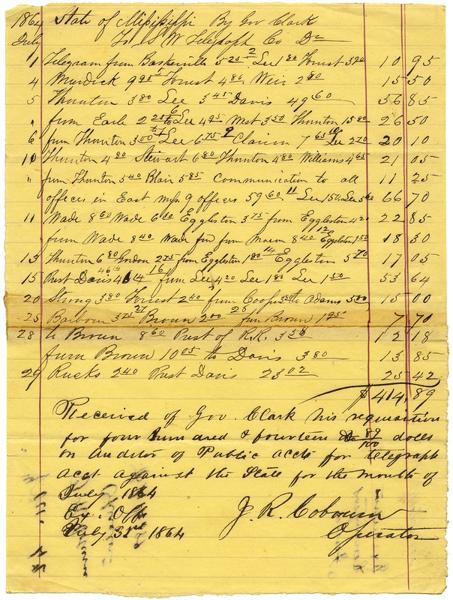 1864 State of Mississippi By Gov Clark
July To S W Telegraph Co Dr
1 Telegram from Baskerville 5 25 Lee 1 80 Forrest 3 90 10 95
4 Murdick 9 85 Forrest 4 85 Weir 2 80 15 50
5 Thurston 3 80 Lee 3 45 Davis 49 60 56 85
" from Earle 2 25 to Lee 4 95 3 50 Thurston 15 80 26 50
6 from Thurston 3 50 Lee 6 75 7 65 Lee 2 70 20 10
10 Thurston 4 80 Stewart 6 80 Thurston 4 80 Williams 4 65 21 05
" from Thurston 5 40 Blair 5 85 Communication to all 11 25
offices in East Miss 9 offices 59 60 Lee Lee 66 70
11 Wade 8 60 Wade 6 10 Eggleston 3 75 from Eggleston 4 20 22 85
from Wade 8 40 Wade from 8 40 Eggleston 1 50 18 30
13 Thurston 6 80 Gordon 2 75 from Eggleston 1 80 Eggleston 5 70 17 05
15 Prest Davis 46 16 from Lee 4 20 Lee 1 80 Lee 1 50 53 64
20 Strong 3 80 Forrest 2 50 from Cooper to Adams 5 00 15 00
25 Barbour 3 75 Brown 2 00 from Brown 1 95 7 70
28 to Brown 8 60 Prest of R.R. 3 58 12 18
from Brown 10 05 to Davis 3 80 13 85
29 Rucks 2 40 Prest Davis 23 02 25 42
$ 414,89
Received of Gov. Clark his requisition
for four hundred & fourteen 89/100 dolls
on Auditor of Public accts for telegraph
acct against the State for the month of
July 1864
Ex. Offs
July 31st 1864 J. R. Cobourn
Operator